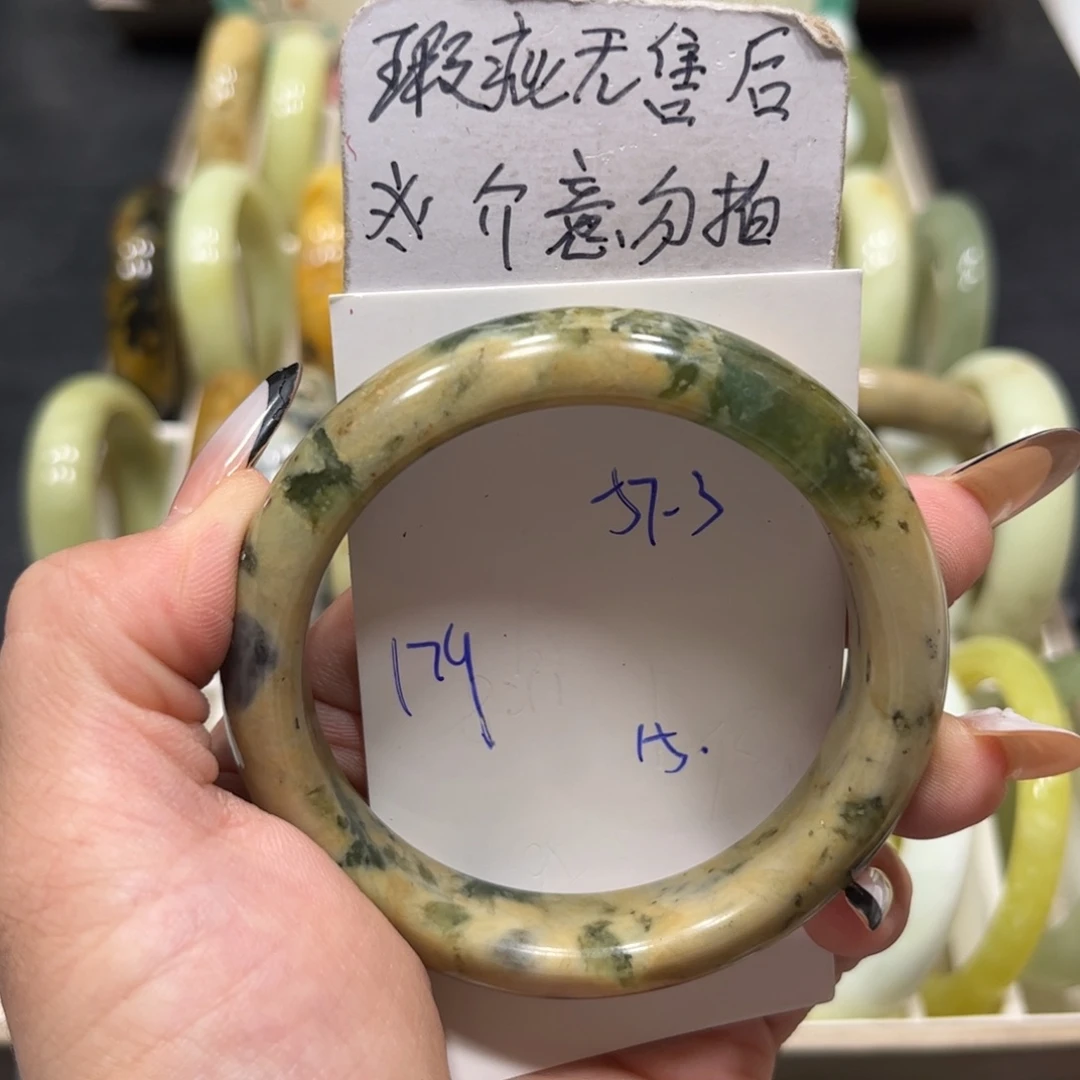 瑕疵无售后
介意勿拍
57-3
174
15.